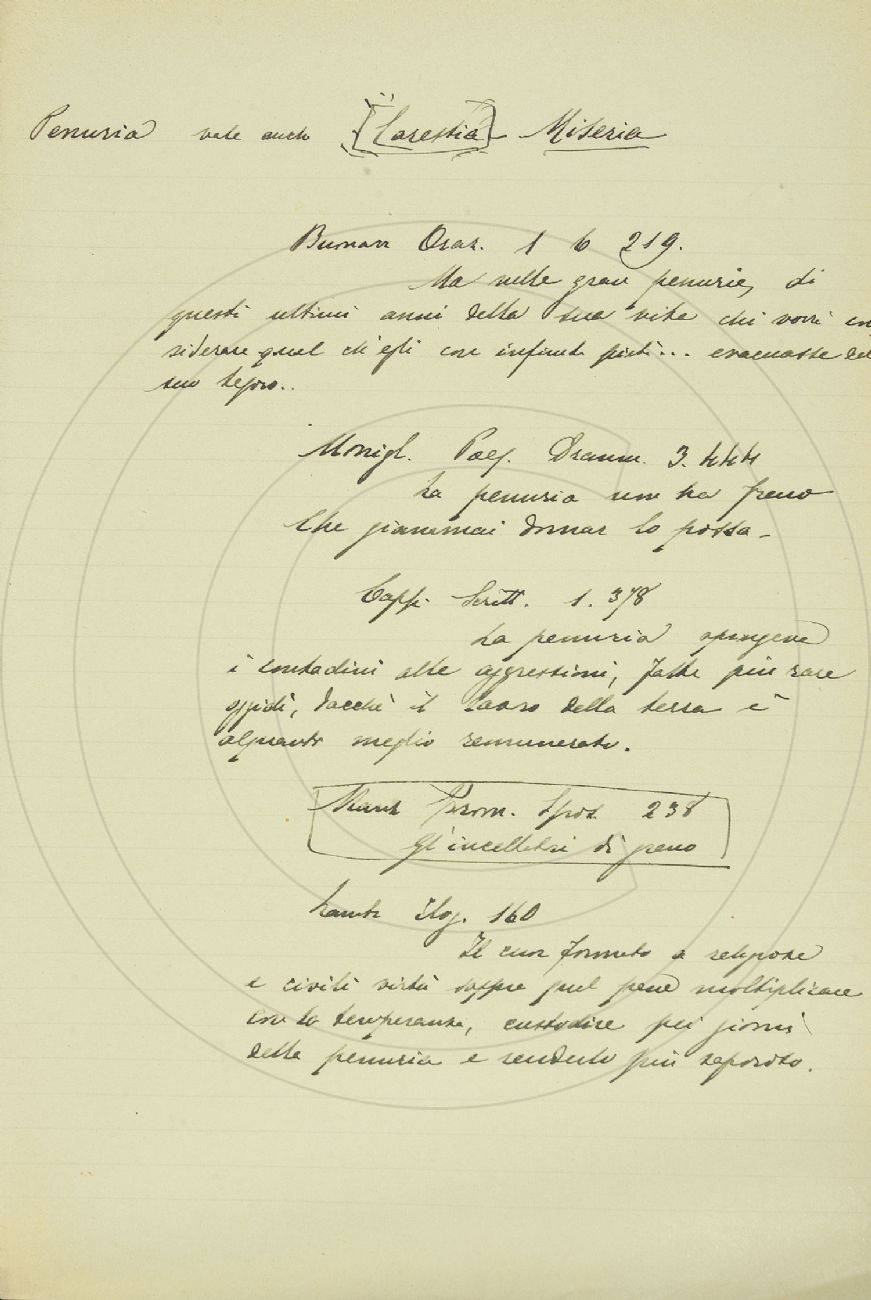 Penuria vale anche [Carestia] Miseria
Buonarr Oraz. 1 6 219.
Ma nella gran penuria, di
questi ultimi anni della sua vita chi vorrà con
siderare quel ch'egli con infinita pietà... evacuasse del
suo tesoro..
Monigl. Poes. Dramm. 3. 444
La penuria non ha freno
Che giammai domar lo possa.
Capp. Scritt. 1. 378
La penuria spingeva
i contadini alle aggressioni, fatte più rare
oggidì, dacchè il lavoro della terra è
alquanto meglio remunerato.
Manz Prom. Spos. 238
Gl'incettatori di grano
Lambr Elog. 160
Il cuor formato a religiose
e civili virtù sappia quel pane moltiplicare
con la temperanza, custodire pei giorni
della penuria e renderlo più saporoso.